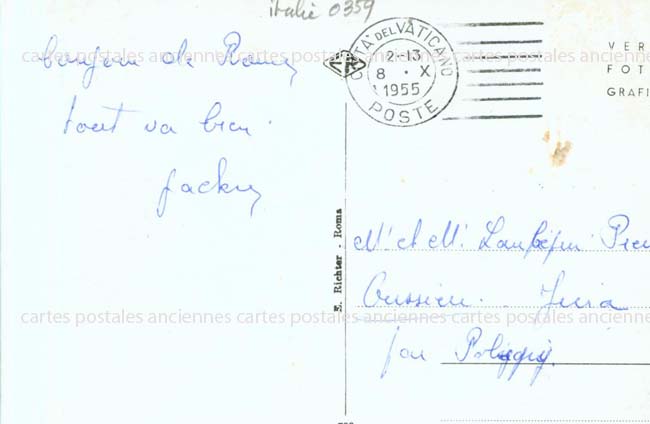 italie 0359
CITTA' DEL VATICANO
12-13
8 · X
1955
POSTE
VER
FOT
GRAFI
cartes postales anciennes cartes postales anciennes cartes postales anciennes
de Rome
tout va bien.
Jacky
E. Richter - Roma
Mr et Me
Jura
cartes postales anciennes cartes postales anciennes cartes postales anciennes
par Poligny